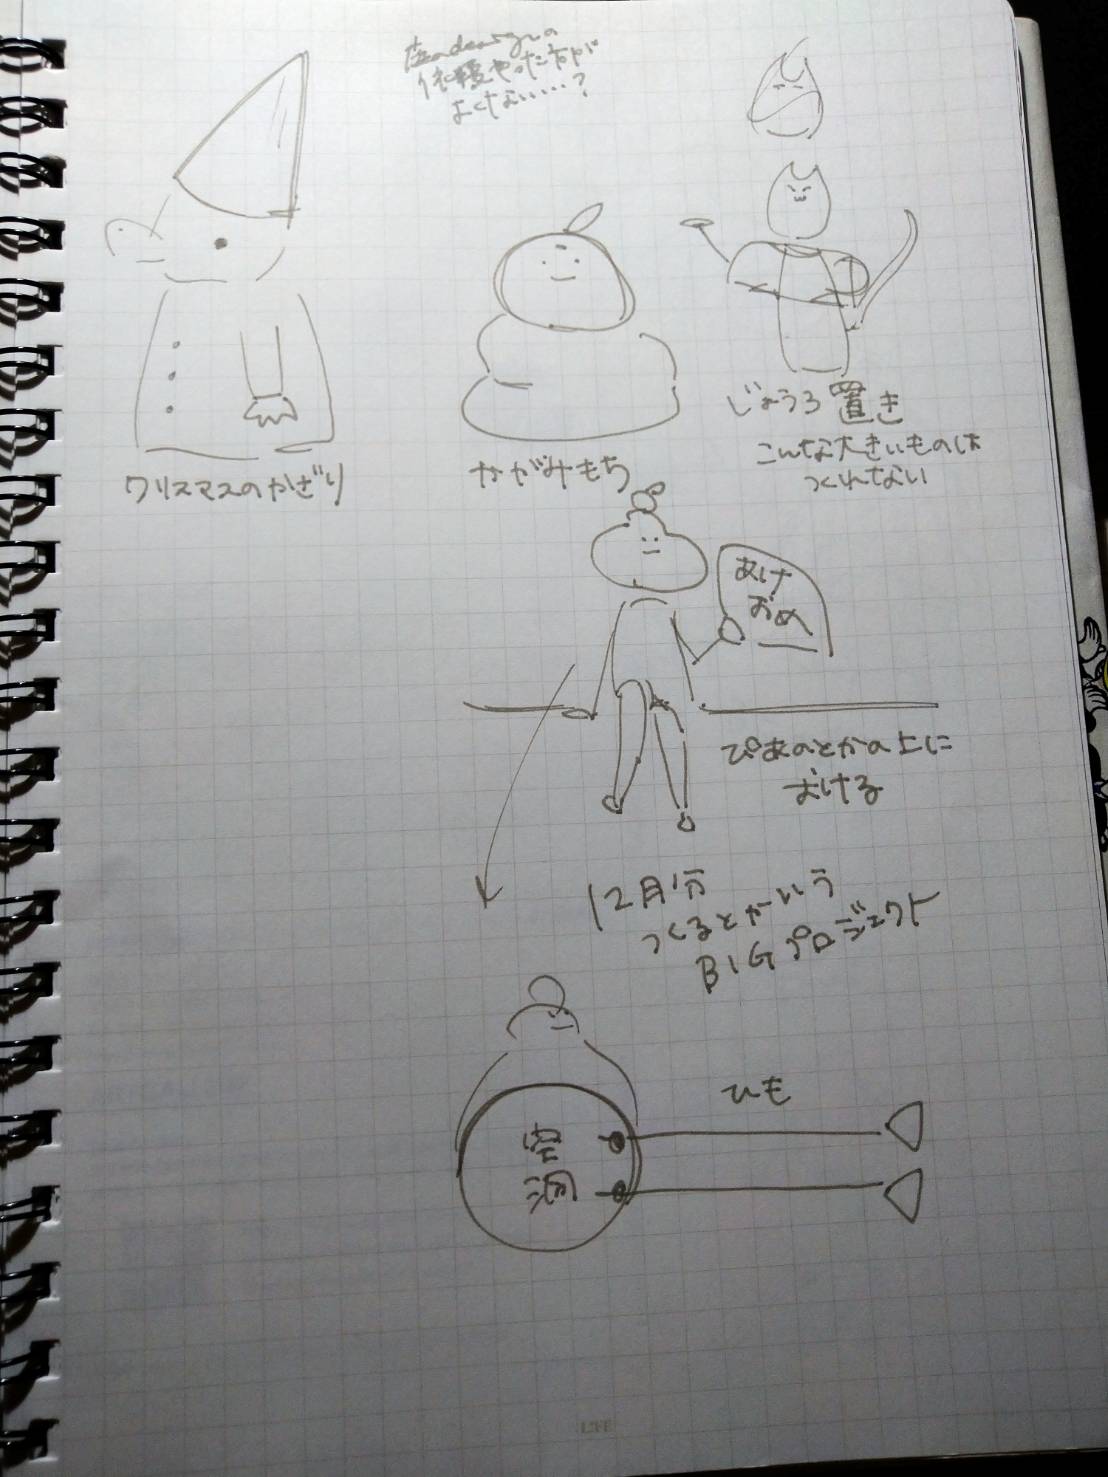 やった方が
よくない…?
クリスマスのかざり
かがみもち
じょうろ置き
こんな大きいものは
つくれない
あけ
おめ
ぴあのとかの上に
おける
12月分
つくるとかいう
BIGプロジェクト
ひも
空
洞
LIFE